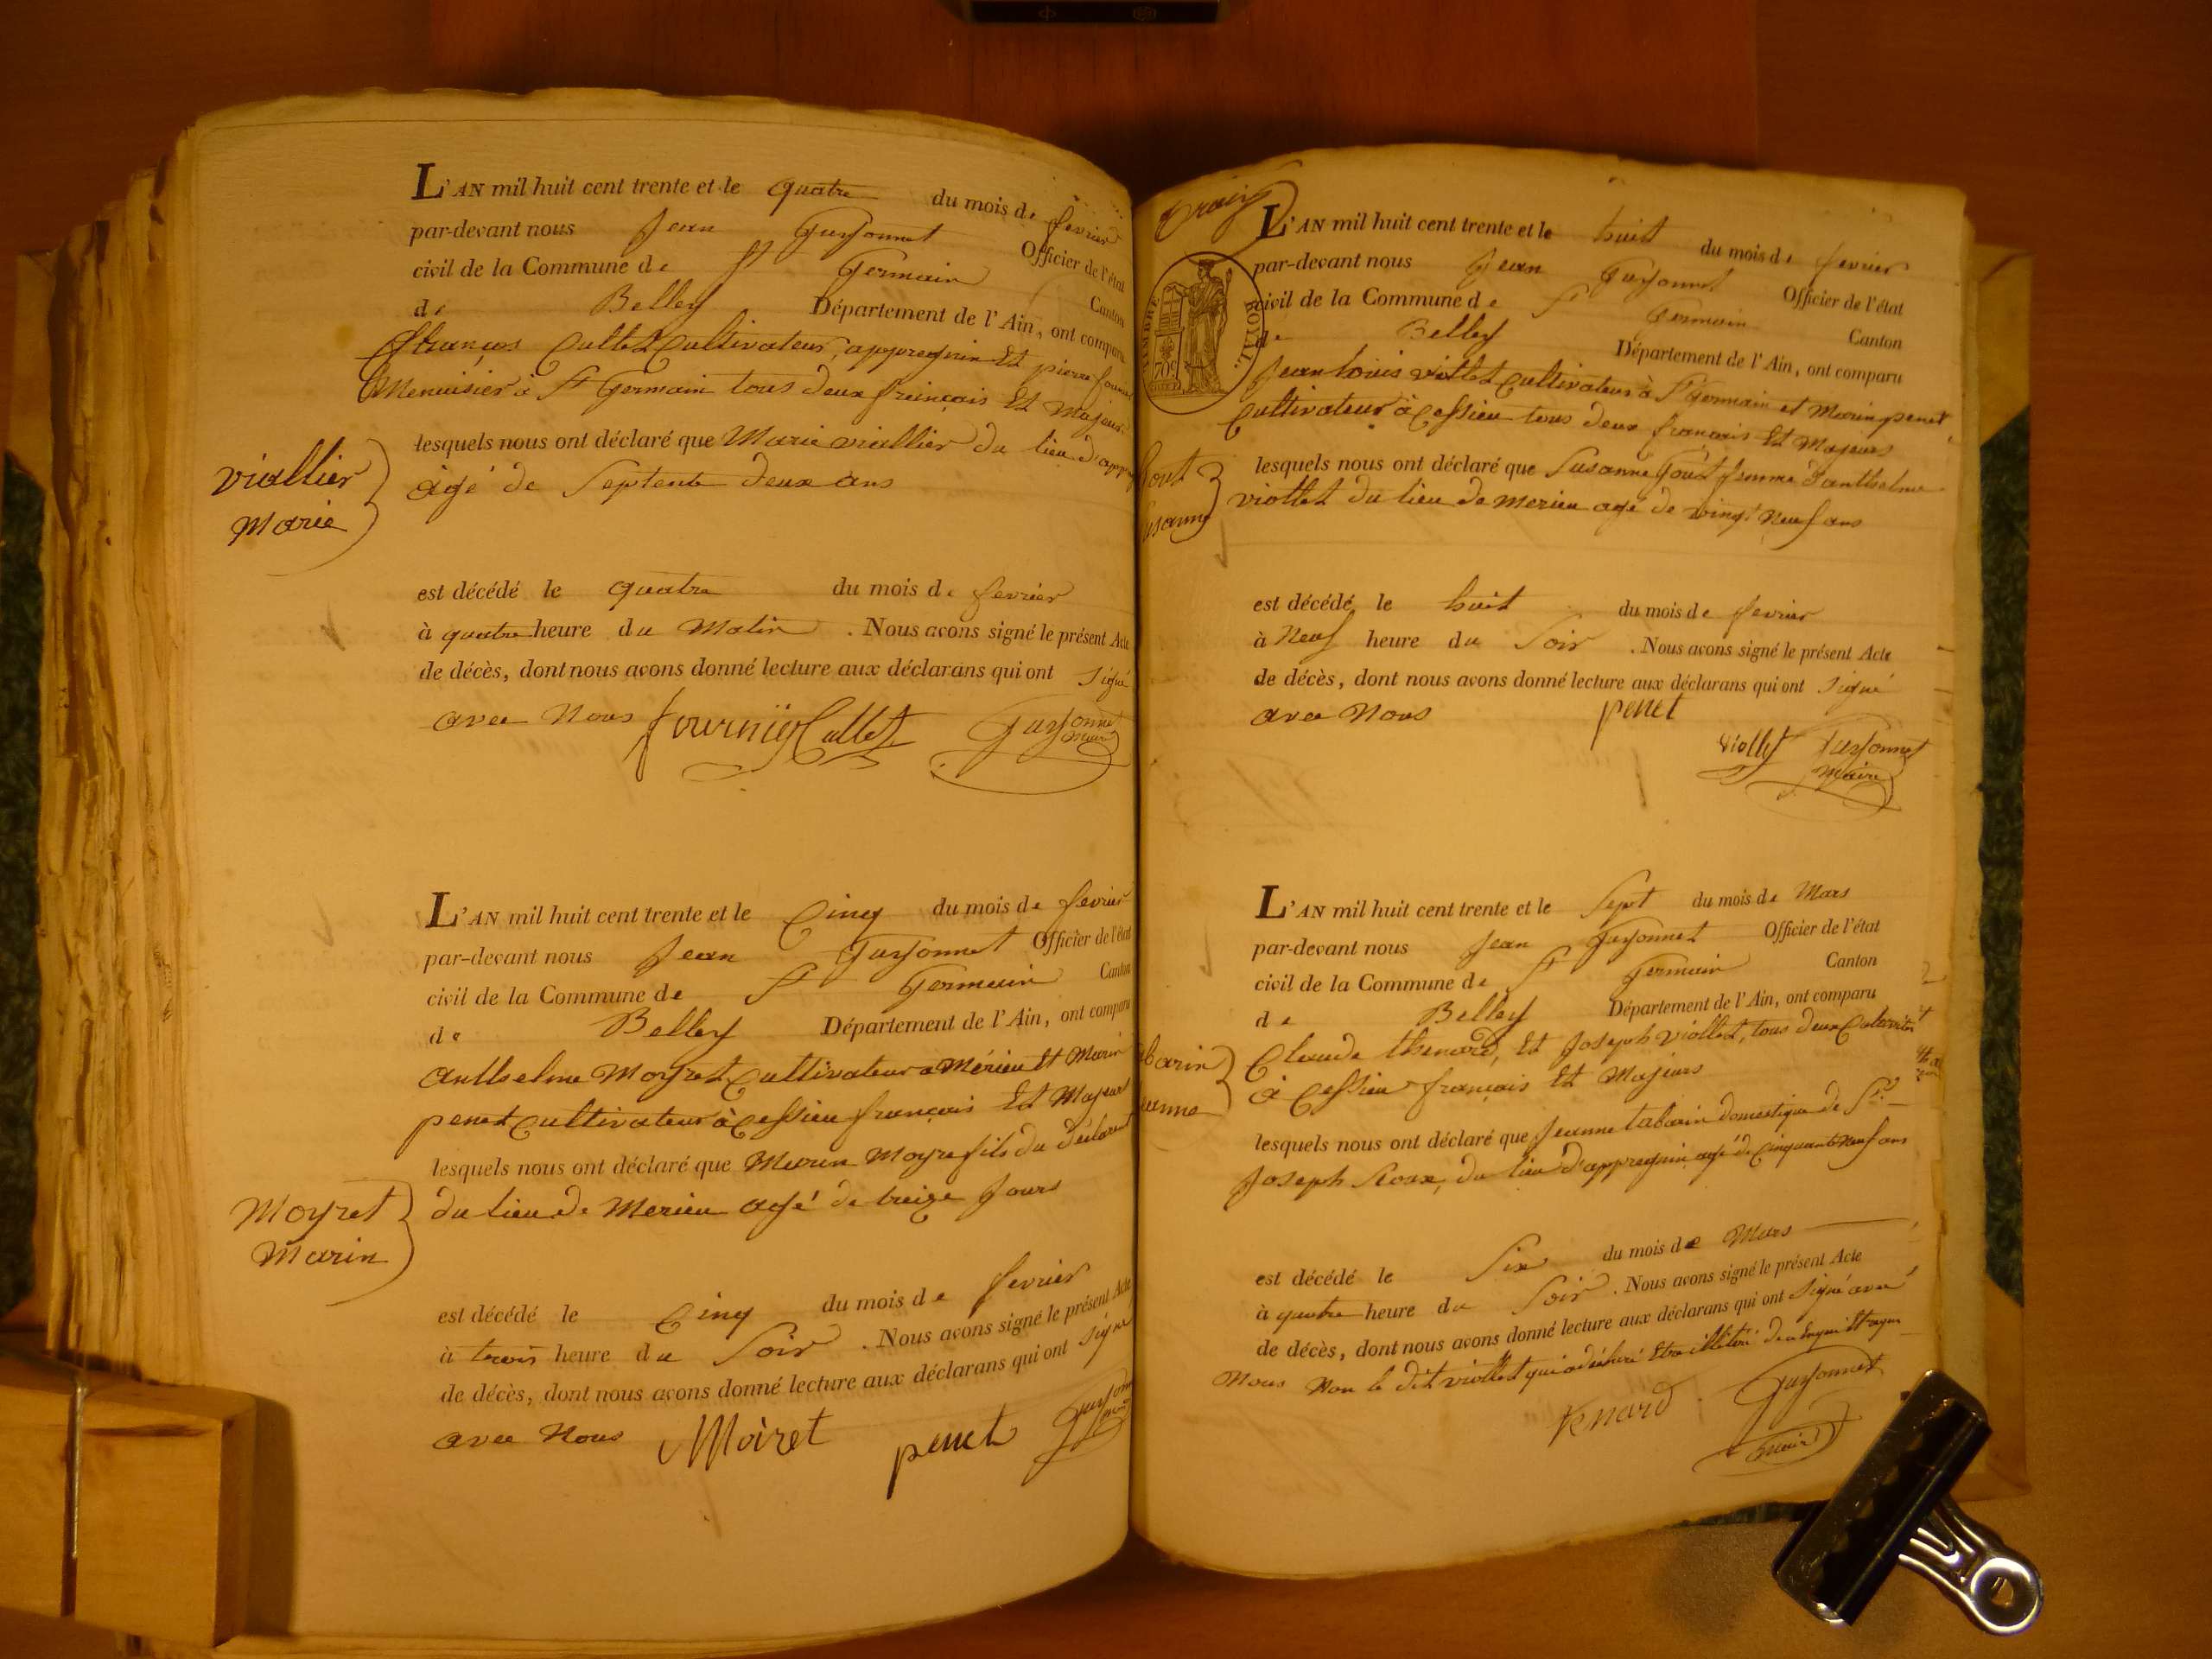 L'AN mil huit cent trente et le quatre du mois de fevrier
par-devant nous Jean Guysonnet Officier de l'état
civil de la Commune de St Germain Canton
de Belley Département de l'Ain, ont comparu
françois Cullet Cultivateur, appregnin Et pierre fournier
Menuisier à St Germain tous deux français Et Majeurs
lesquels nous ont déclaré que Marie viallier du lieu d'appregnin
âgé de Septente deux ans
viallier
Marie
est décédé le quatre du mois de fevrier
à quatre heure du Matin. Nous avons signé le présent Acte
de décès, dont nous avons donné lecture aux déclarans qui ont signé
avec Nous fournier Cullet Guysonnet
Maire
L'AN mil huit cent trente et le Cinq du mois de fevrier
par-devant nous Jean Guysonnet Officier de l'état
civil de la Commune de St Germain Canton
de Belley Département de l'Ain, ont comparu
anthelme Moyret Cultivateur a Mérieu Et Marin
penet Cultivateur à Cessieu français Et Majeurs
lesquels nous ont déclaré que Marin Moyre fils du déclarent
du lieu de Merieu agé de treize Jours
Moyret
Marin
est décédé le Cinq du mois de fevrier
à trois heure du Soir. Nous avons signé le présent Acte
de décès, dont nous avons donné lecture aux déclarans qui ont signé
avec Nous Moiret penet Guysonnet
L'AN mil huit cent trente et le huit du mois de fevrier
par-devant nous Jean Guysonnet Officier de l'état
civil de la Commune de St Germain Canton
de Belley Département de l'Ain, ont comparu
TIMBRE ROYAL
Jean Louis viollet Cultivateur à St Germain et Marin penet
Cultivateur à Cessieu tous deux français Et Majeurs
lesquels nous ont déclaré que Susanne Gout femme d'anthelme
viollet du lieu de Merieu agé de vingt Neuf ans
est décédé le huit du mois de fevrier
à Neuf heure du Soir. Nous avons signé le présent Acte
de décès, dont nous avons donné lecture aux déclarans qui ont signé
avec Nous penet
viollet Guysonnet
Maire
L'AN mil huit cent trente et le Sept du mois de Mars
par-devant nous Jean Guysonnet Officier de l'état
civil de la Commune de St Germain Canton
de Belley Département de l'Ain, ont comparu
Claude thenard, Et Joseph viollet, tous deux
à Cessieu français Et Majeurs
lesquels nous ont déclaré que Jeanne tabarin domestique de Sr
Joseph Roux, du lieu d'appregnin agé de Cinquante Neuf ans
est décédé le Six du mois de Mars
à quatre heure du Soir. Nous avons signé le présent Acte
de décès, dont nous avons donné lecture aux déclarans qui ont signé avec
Nous Non le dit viollet qui a déclaré Etre illitéré de ce Enquis
tenard Guysonnet
Maire